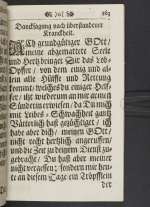 363
Dancksagung nach überstandener
Kranckheit.
ACh grundgütiger GOtt/
meine abgemattete Seele
und Hertz bringet Dir das Lob-
Opffer/ von dem einig und al-
lein alle Hülffe und Rettung
kommt/
ich armen
Sünderin da Du mich
mit Leibes-Schwachheit gantz
Väterlich hast gezüchtiget/ ich
habe aber dich/ meinen GOtt/
nicht recht hertzlich angeruffen/
und die Zeit zu deinem Dienst zu-
gebracht/ Du hast aber meiner
nicht vergessen/ sondern mir heu-
te an diesem Tage ein Tröpfflein
der